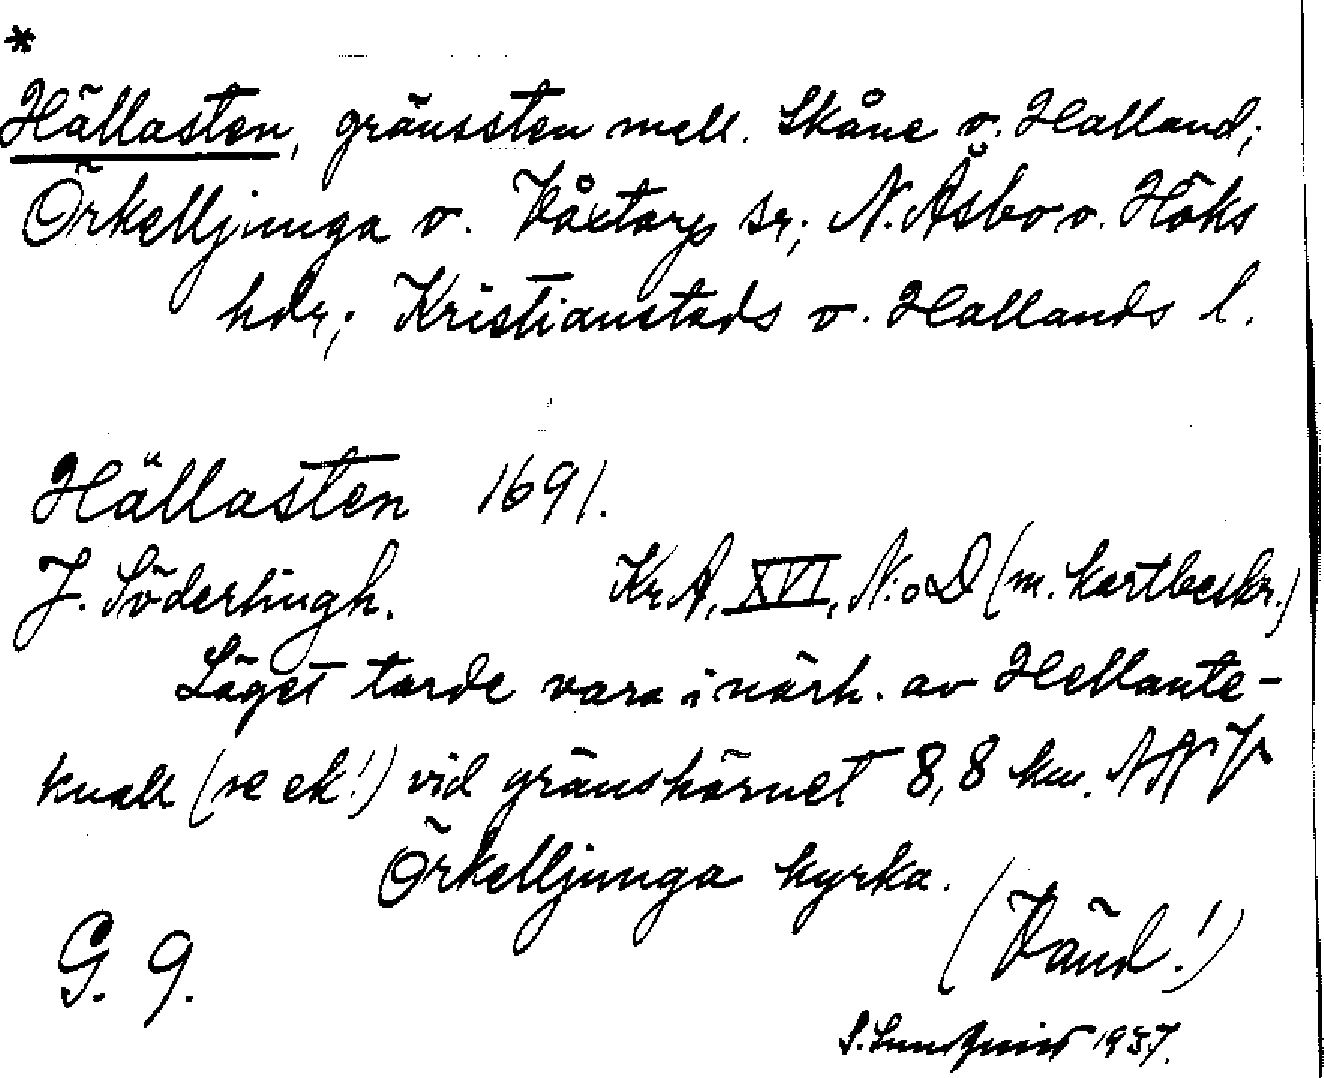 *
Hällasten, gränssten mell. Skåne o. Halland;
Örkelljunga o. Våxtorps sr; N. Åsbo o. Höks
hdr; Kristianstads o. Hallands l.
Hällasten 1691.
J. Söderlingh. Kr.A. XVI, N:o D (m. kartbeskr.)
Läget torde vara i närh. av Hellante-
knall (se ek!) vid gränshörnet 8,8 km. NNV
Örkelljunga kyrka.
(Vänd!)
G. 9.
S. Lundquist 1937.